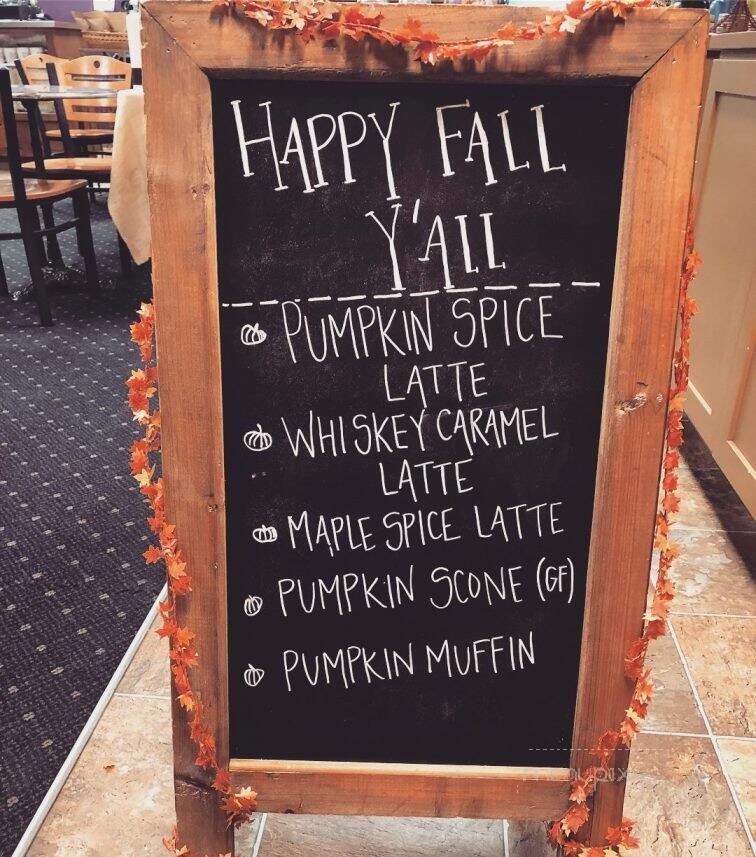 HAPPY FALL
Y'ALL
PUMPKIN SPICE
LATTE
WHISKEY CARAMEL
LATTE
MAPLE SPICE LATTE
PUMPKIN SCONE (GF)
PUMPKIN MUFFIN